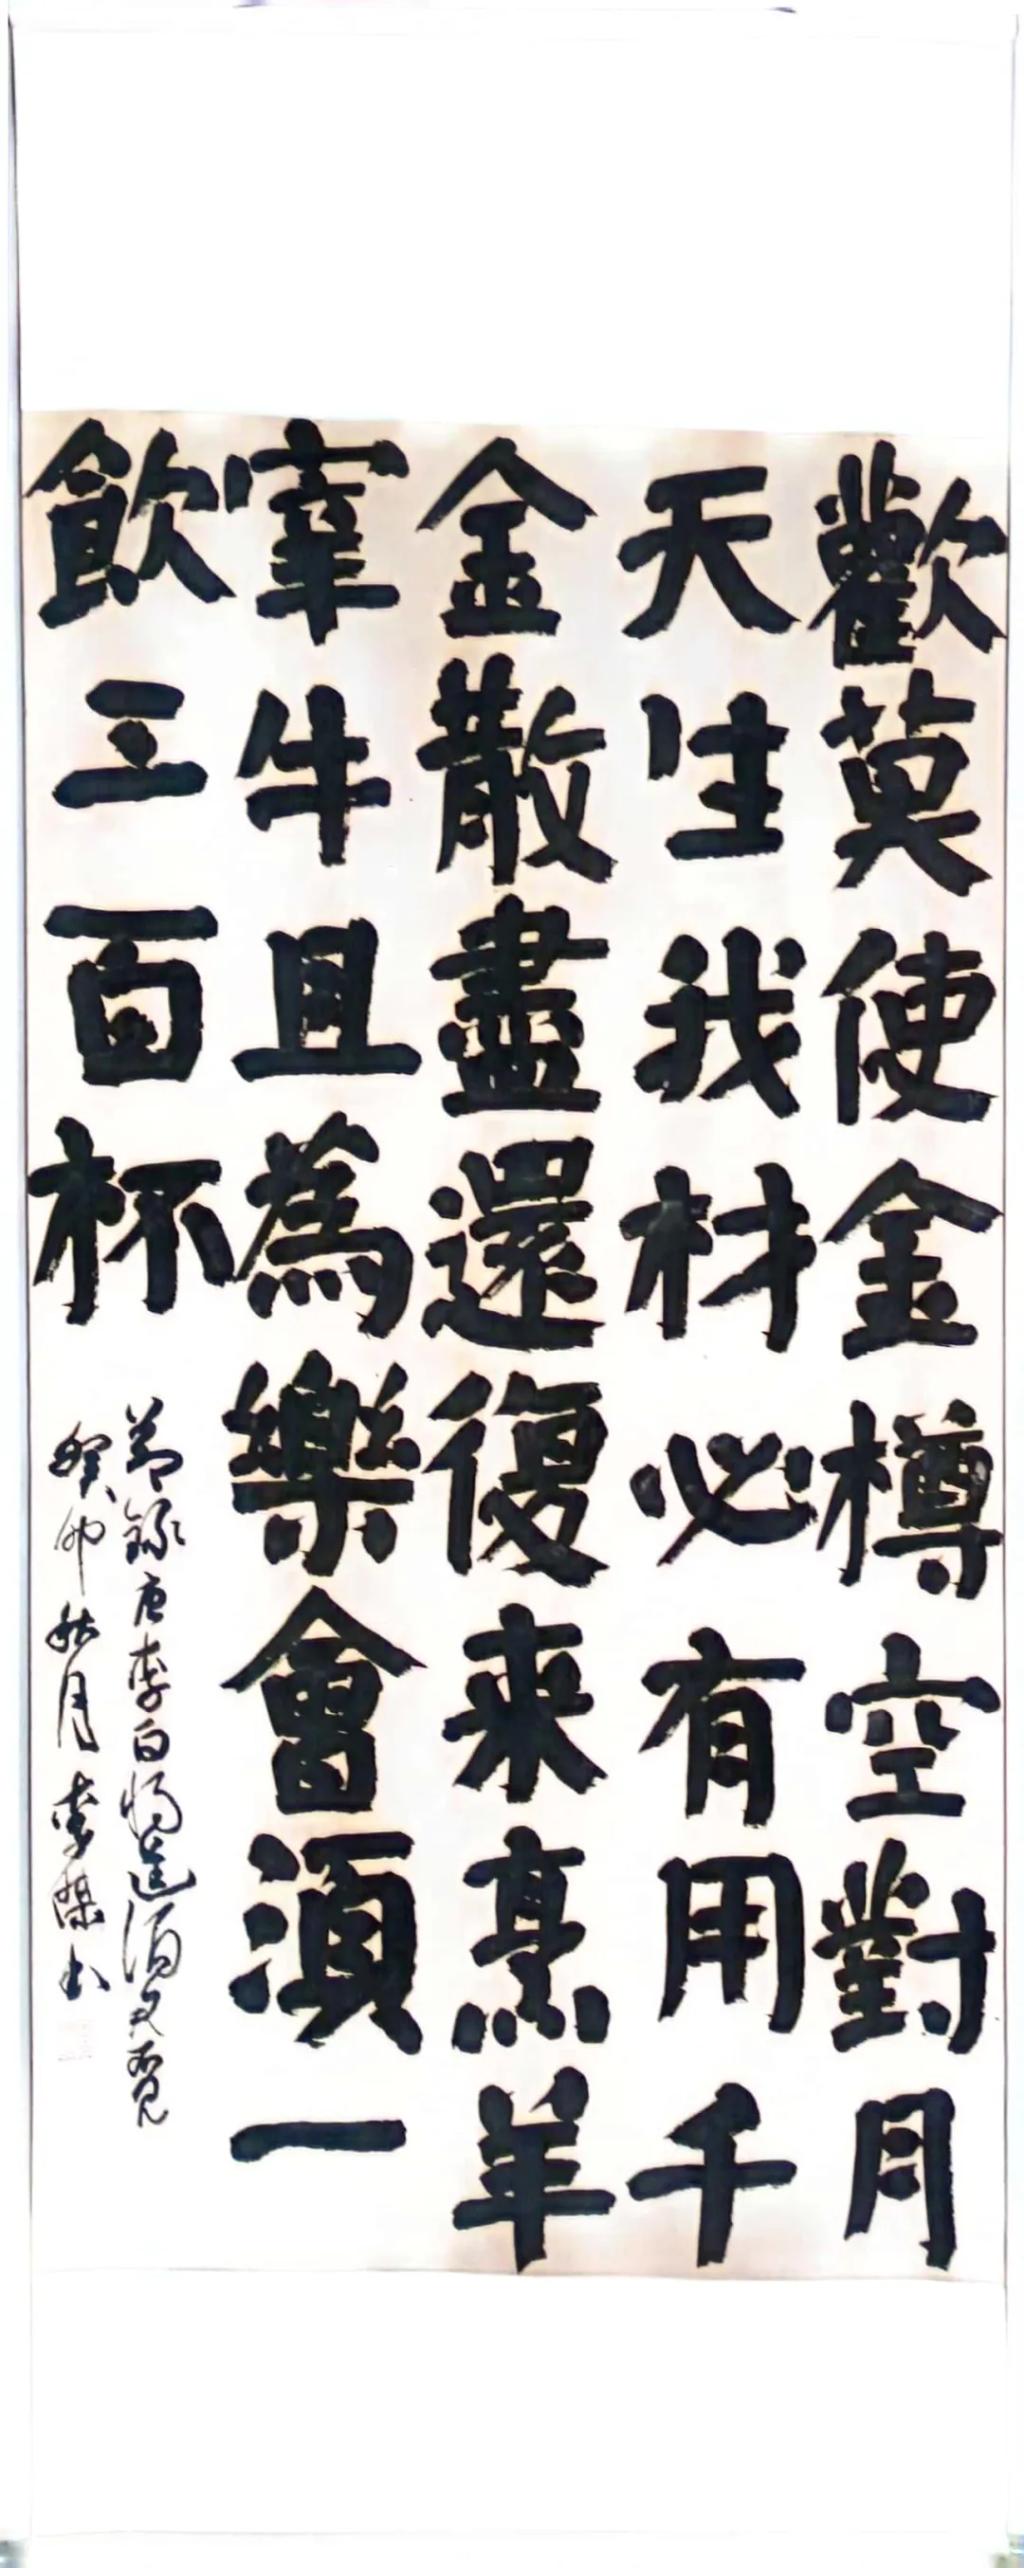 歡莫使金樽空對月
天生我材必有用千
金散盡還復來烹羊
宰牛且為樂會須一
飲三百杯
節錄唐李白將進酒
癸卯秋月李樂書